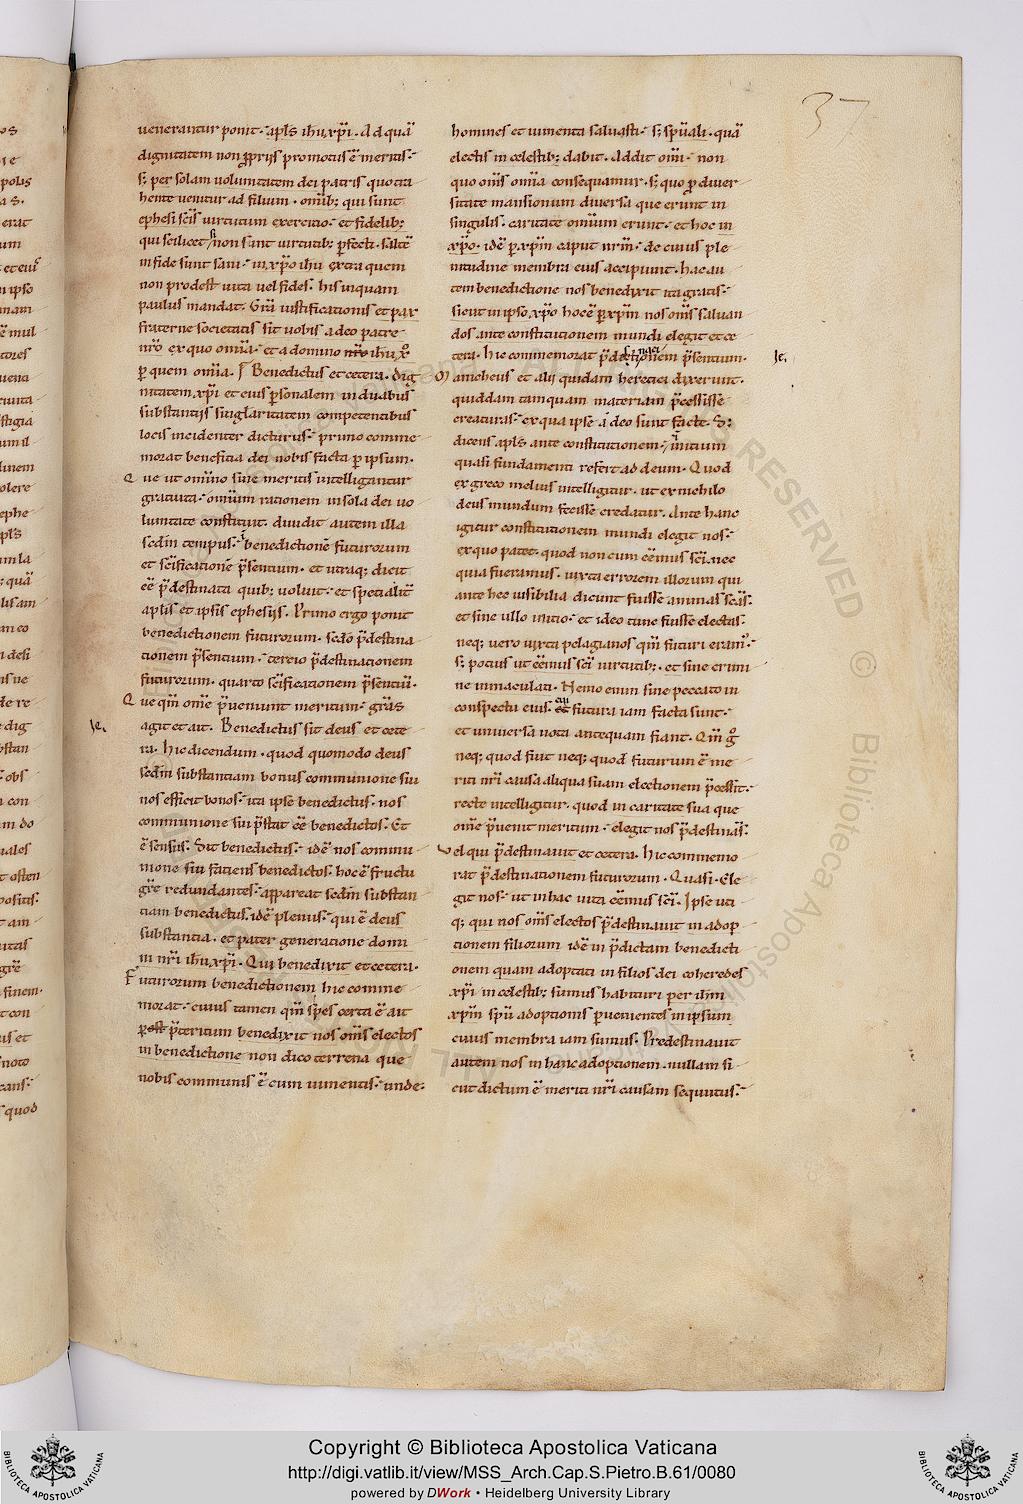 37
uenerantur ponit. apłs ihu xp̄i. Ad quā
dignitatem non ꝓprijs promotus ē meritis.
s; per solam uoluntatem dei patris quo tra
hente uenitur ad filium. omīb; qui sunt
ephesi sc̄is uirtutum exercitio. et fidelib;
qui scilicet si non sunt uirtutib; ꝑfecti. saltē
in fide sunt sani. in xp̄o ihu extra quem
non prodest uita uel fides. his inquam
paulus mandat. Gr̄a iustificationis et pax
fraterne societatis sit uobis a deo patre
nr̄o ex quo omīa. et a domino nr̄o ihu x̊
ꝑ quem omīa. Benedictus et cetera. dig
nitatem xp̄i et eius ꝑsonalem in duabus
substantijs singlaritatem competentibus
locis incidenter dicturus. primo comme
morat beneficia dei nobis facta ꝑ ipsum.
Que ut omīno sine meritis intelligantur
gratuita. omīum rationem in sola dei uo
luntate constituit. diuidit autem illa
sedm̄ tempus. i benedictionē futurorum
et sc̄ificationē p̄sentium. et utraq; dicit
eē p̄destinata quib; uoluit. et specialit̄
aplis et ipsis ephesijs. Primo ergo ponit
benedictionem futurorum. sedo p̄destina
tionem p̄sentium. tercio p̄destinationem
futurorum. quarto sc̄ificationem p̄sentiū.
Que qm̄ om̄e p̄ueniunt meritum. gr̄as
Je.
agit et ait. Benedictus sit deus et cete
ra. hic dicendum. quod quomodo deus
sedm̄ substantiam bonus communione sui
nos efficit bonos. ita ipse benedictus. nos
communione sui p̄stat eē benedictos. Et
ē sensus. Sit benedictus. idē nos commu
nione sui faciens benedictos. hoc ē fructu
gr̄e redundantes. appareat sedm̄ substan
tiam benedictus. idē plenus. qui ē deus
substantia. et pater generatione domi
ni nr̄i ihu xp̄i. Qui benedixit et cetera.
Futurorum benedictionem hic comme
morat. cuius tamen qm̄ spes certa ē ait
p̄teritum benedixit nos om̄s electos
in benedictione non dico terrena que
nobis communis ē cum iumentis. unde.
homines et iumenta saluasti. s; sp̄uali. quā
electis in celestib; dabit. Addit om̄i. non
quo om̄s omīa consequamur. s; quo ꝑ diuer
sitate mansionum diuersa que erunt in
singulis. caritate omīum erunt. et hoc in
xp̄o. idē ꝑ xp̄m caput nr̄m. de cuius ple
nitudine membra eius accipiunt. hac au
tem benedictione nos benedixit ita gratis.
sicut in ipso xp̄o hoc ē ꝑ xp̄m nos om̄s saluan
dos ante constitutionem mundi elegit et ce
tera. hic commemorat p̄destinationem p̄sentium.
Je.
Manicheus et alij quidam heretici dixerunt.
quiddam tamquam materiam p̄cessisse
creaturas. ex qua ipse a deo sunt facte. S;
dicens apls ante constitutionem. i initium
quasi fundamenti refert ad deum. Quod
ex greco melius intelligitur. ut ex nichilo
deus mundum fecisse credatur. Ante hanc
igitur constitutionem mundi elegit nos.
ex quo patet. quod non cum eēmus sc̄i. nec
quia fueramus. iuxta errorem illorum qui
ante hec uisibilia dicunt fuisse animas sc̄as.
et sine ullo initio. et ideo tunc fuisse electas.
neq; uero iuxta pelagianos qm̄ futuri eram᷒.
s; potius ut eēmus sc̄i uirtutib;. et sine crimi
ne inmaculati. Nemo enim sine peccato in
conspectu eius. cui futura iam facta sunt.
et uniuersa nota antequam fiant. Qm̄ g̊
neq; quod fuit neq; quod futurum ē me
riti nr̄i causa aliqua suam electionem p̄cessit.
recte intelligitur. quod in caritate sua que
om̄e p̄uenit meritum. elegit nos p̄destinās.
Vel qui p̄destinauit et cetera. hic commemo
rat p̄destinationem futurorum. Quasi. Ele
git nos. ut in hac uita eēmus sc̄i. Ipse uti
q; qui nos om̄s electos p̄destinauit in adop
tionem filiorum idē in p̄dictam benedicti
onem quam adoptati in filios dei coheredes
xp̄i in celestib; sumus habituri per ihm̄
xp̄m sp̄u adoptionis ꝑuenientes in ipsum
cuius membra iam sumus. Predestinauit
autem nos in hanc adoptionem. nullam si
cut dictum ē meriti nr̄i causam sequutus.
Copyright © Biblioteca Apostolica Vaticana
http://digi.vatlib.it/view/MSS_Arch.Cap.S.Pietro.B.61/0080
powered by DWork • Heidelberg University Library